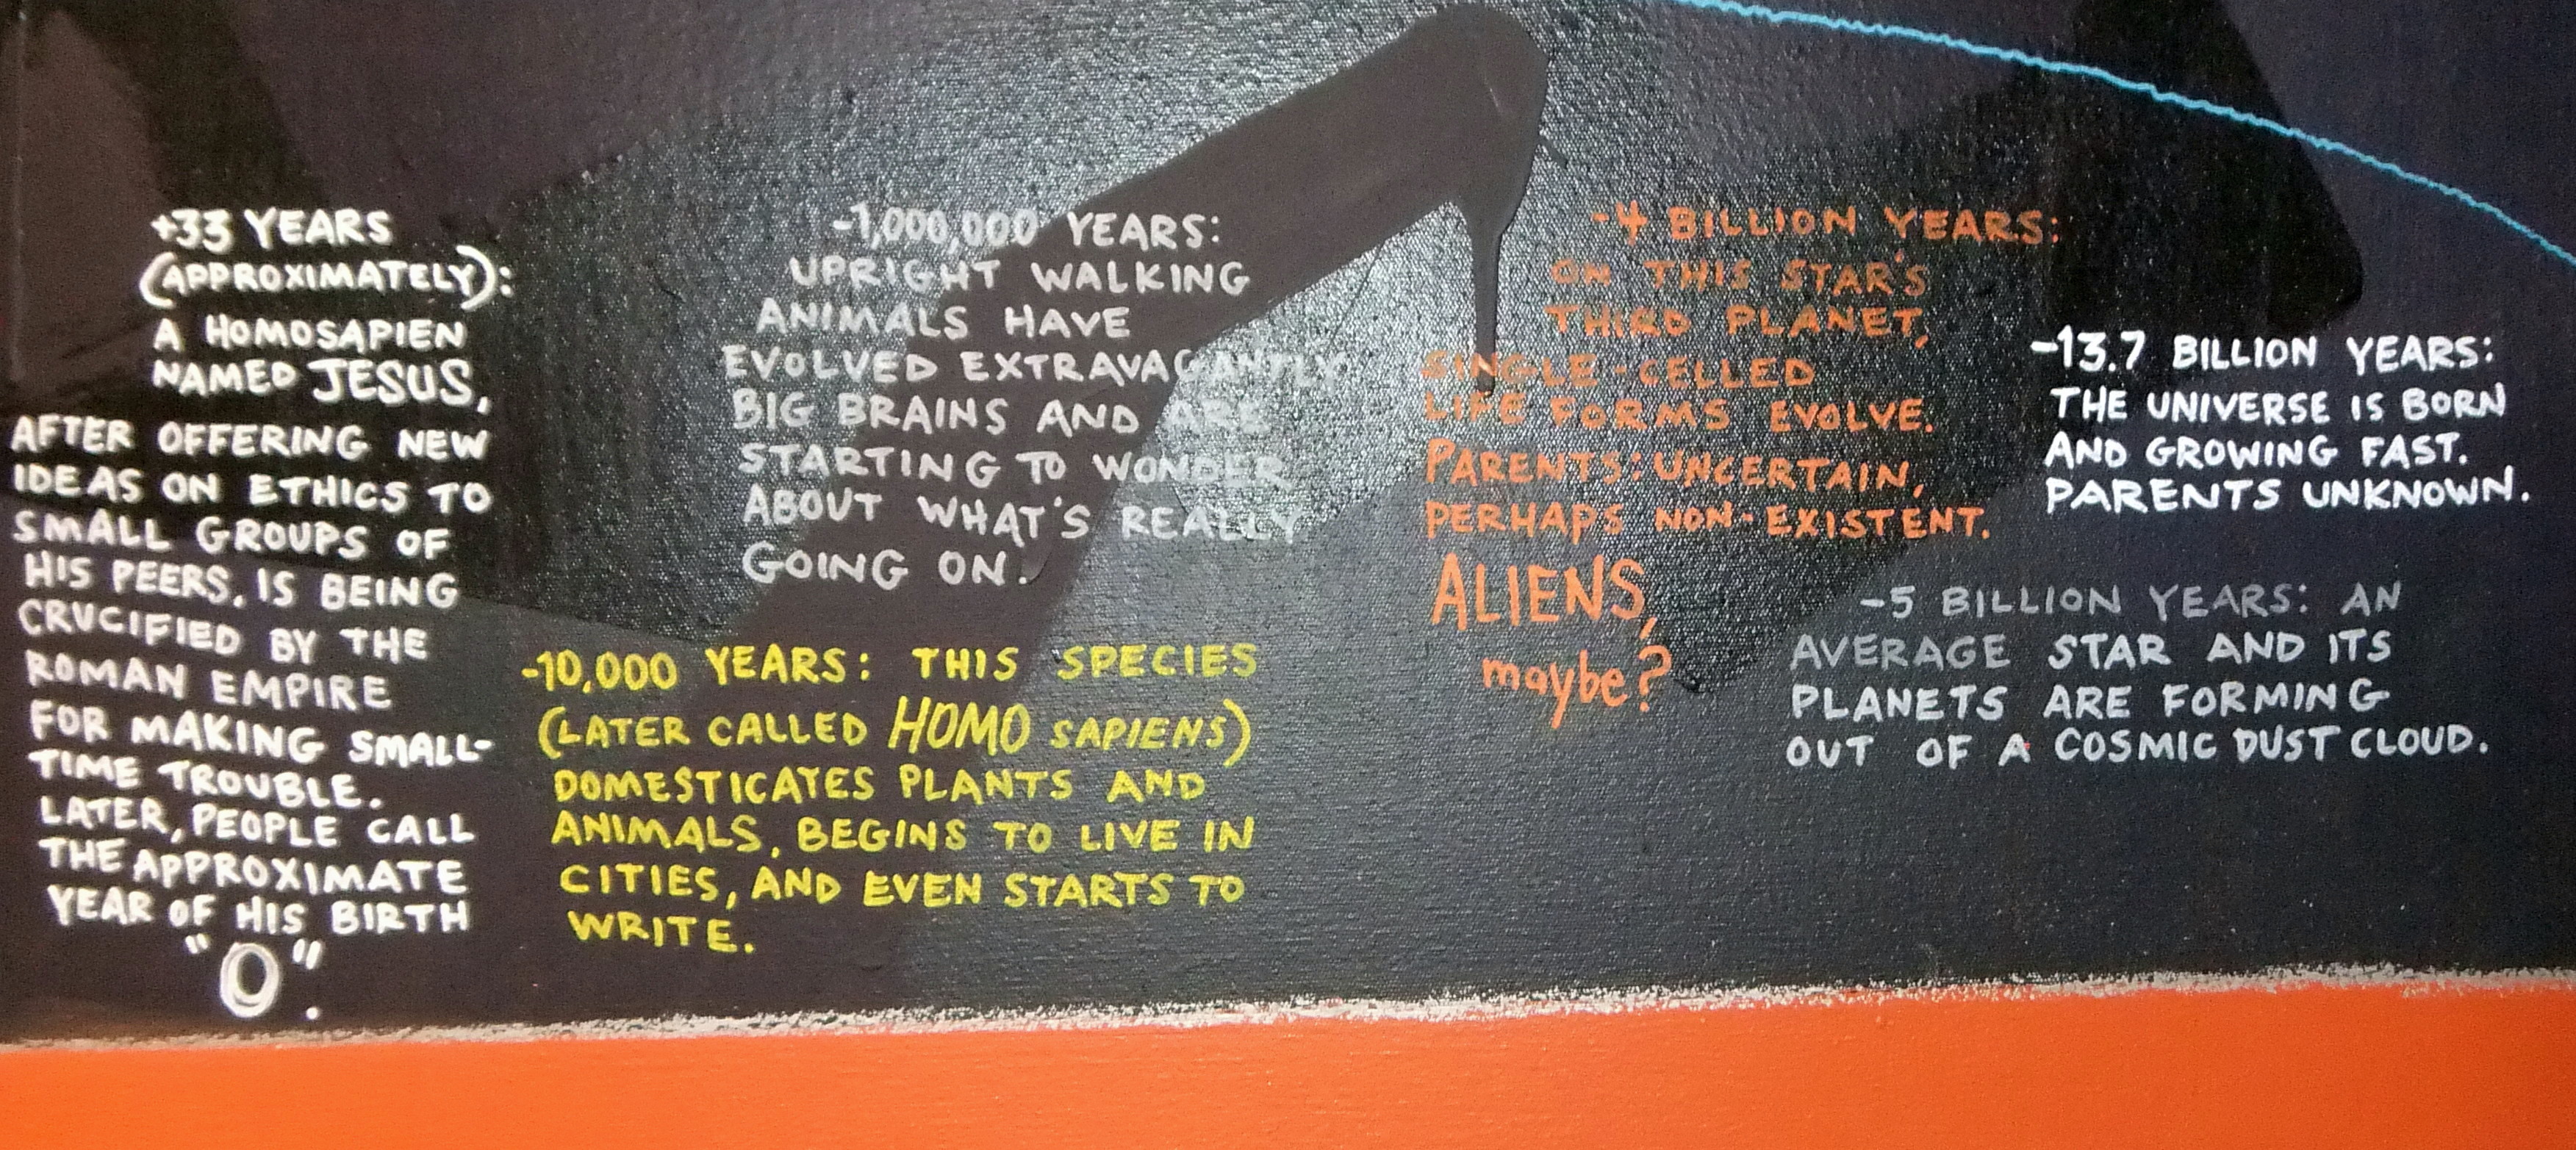 +33 YEARS
(APPROXIMATELY):
A HOMOSAPIEN
NAMED JESUS,
AFTER OFFERING NEW
IDEAS ON ETHICS TO
SMALL GROUPS OF
HIS PEERS, IS BEING
CRUCIFIED BY THE
ROMAN EMPIRE
FOR MAKING SMALL-
TIME TROUBLE.
LATER, PEOPLE CALL
THE APPROXIMATE
YEAR OF HIS BIRTH
"0".
-1,000,000 YEARS:
UPRIGHT WALKING
ANIMALS HAVE
EVOLVED EXTRAVAGANTLY
BIG BRAINS AND ARE
STARTING TO WONDER
ABOUT WHAT'S REALLY
GOING ON.
-10,000 YEARS: THIS SPECIES
(LATER CALLED HOMO SAPIENS)
DOMESTICATES PLANTS AND
ANIMALS, BEGINS TO LIVE IN
CITIES, AND EVEN STARTS TO
WRITE.
-4 BILLION YEARS:
ON THIS STAR'S
THIRD PLANET,
SINGLE-CELLED
LIFE FORMS EVOLVE.
PARENTS: UNCERTAIN,
PERHAPS NON-EXISTENT.
ALIENS,
maybe?
-13.7 BILLION YEARS:
THE UNIVERSE IS BORN
AND GROWING FAST.
PARENTS UNKNOWN.
-5 BILLION YEARS: AN
AVERAGE STAR AND ITS
PLANETS ARE FORMING
OUT OF A COSMIC DUST CLOUD.